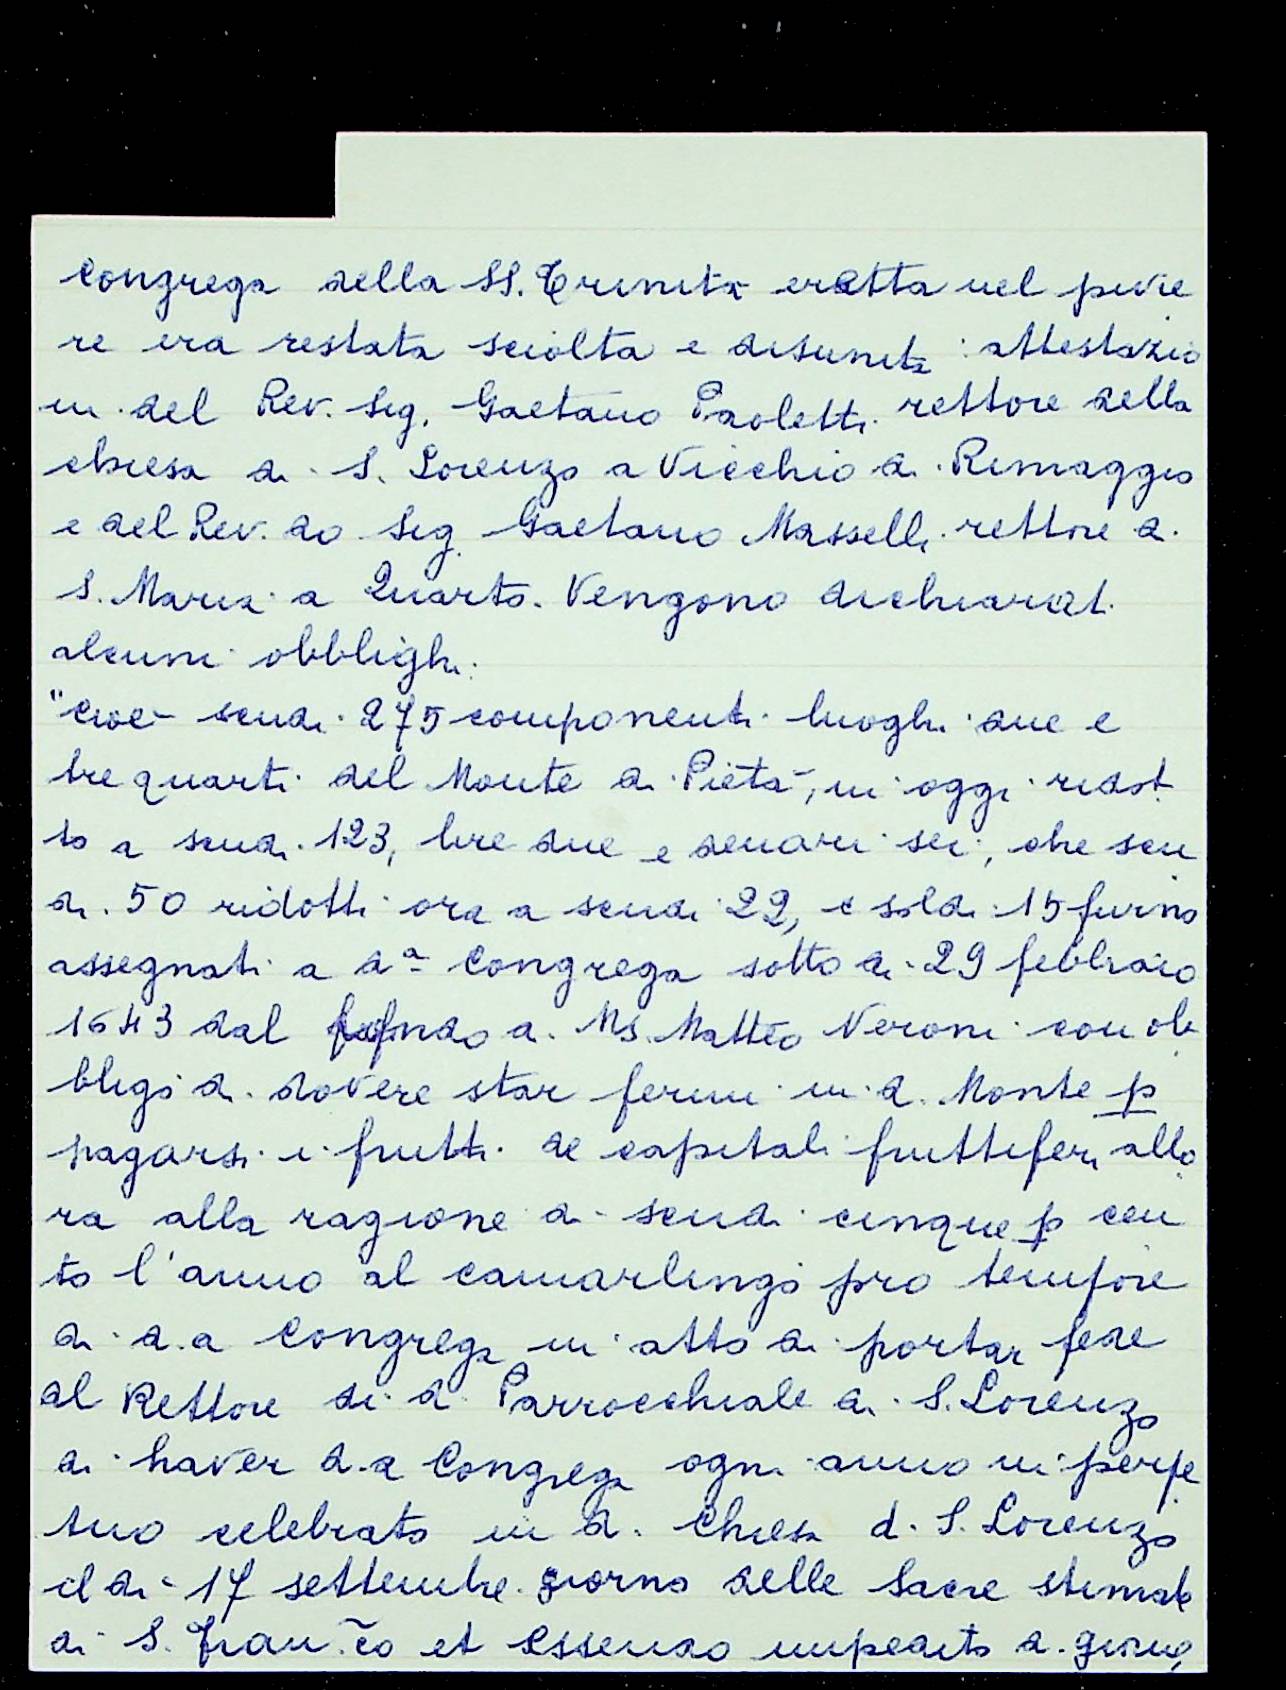 Congrega della SS. Trinità eretta nel pivie
re era restata sciolta e disunita: attestazio
ni del Rev. Sig. Gaetano Paoletti rettore della
chiesa di S. Lorenzo a Vicchio di Rimaggio
e del Rev. do Sig. Gaetano Masselli rettore di
S. Maria a Quarto. Vengono dichiarati
alcuni obblighi:
"cioè scudi 275 componenti luoghi due e
tre quarti del Monte di Pietà, in oggi ridot
to a scudi 123, lire due e denari sei, che scu
di 50 ridotti ora a scudi 22, e soldi 15 furno
assegnati a d.ª Congrega sotto di 29 febbraio
1643 dal fu Ms. Matteo Veroni con ob
bligo di dovere star fermi in d. Monte p
pagarsi i frutti de capitali fruttiferi allo
ra alla ragione di scudi cinque p cen
to l'anno al camarlingo pro tempore
di d.a Congrega in atto di portar fede
al Rettore di d. Parrocchiale di S. Lorenzo
di haver d.a Congrega ogni anno in perpe
tuo celebrato in d. Chiesa d. S. Lorenzo
il dì 17 settembre giorno delle Sacre stimate
di S. Fran.co et essendo impedito d. giorno,